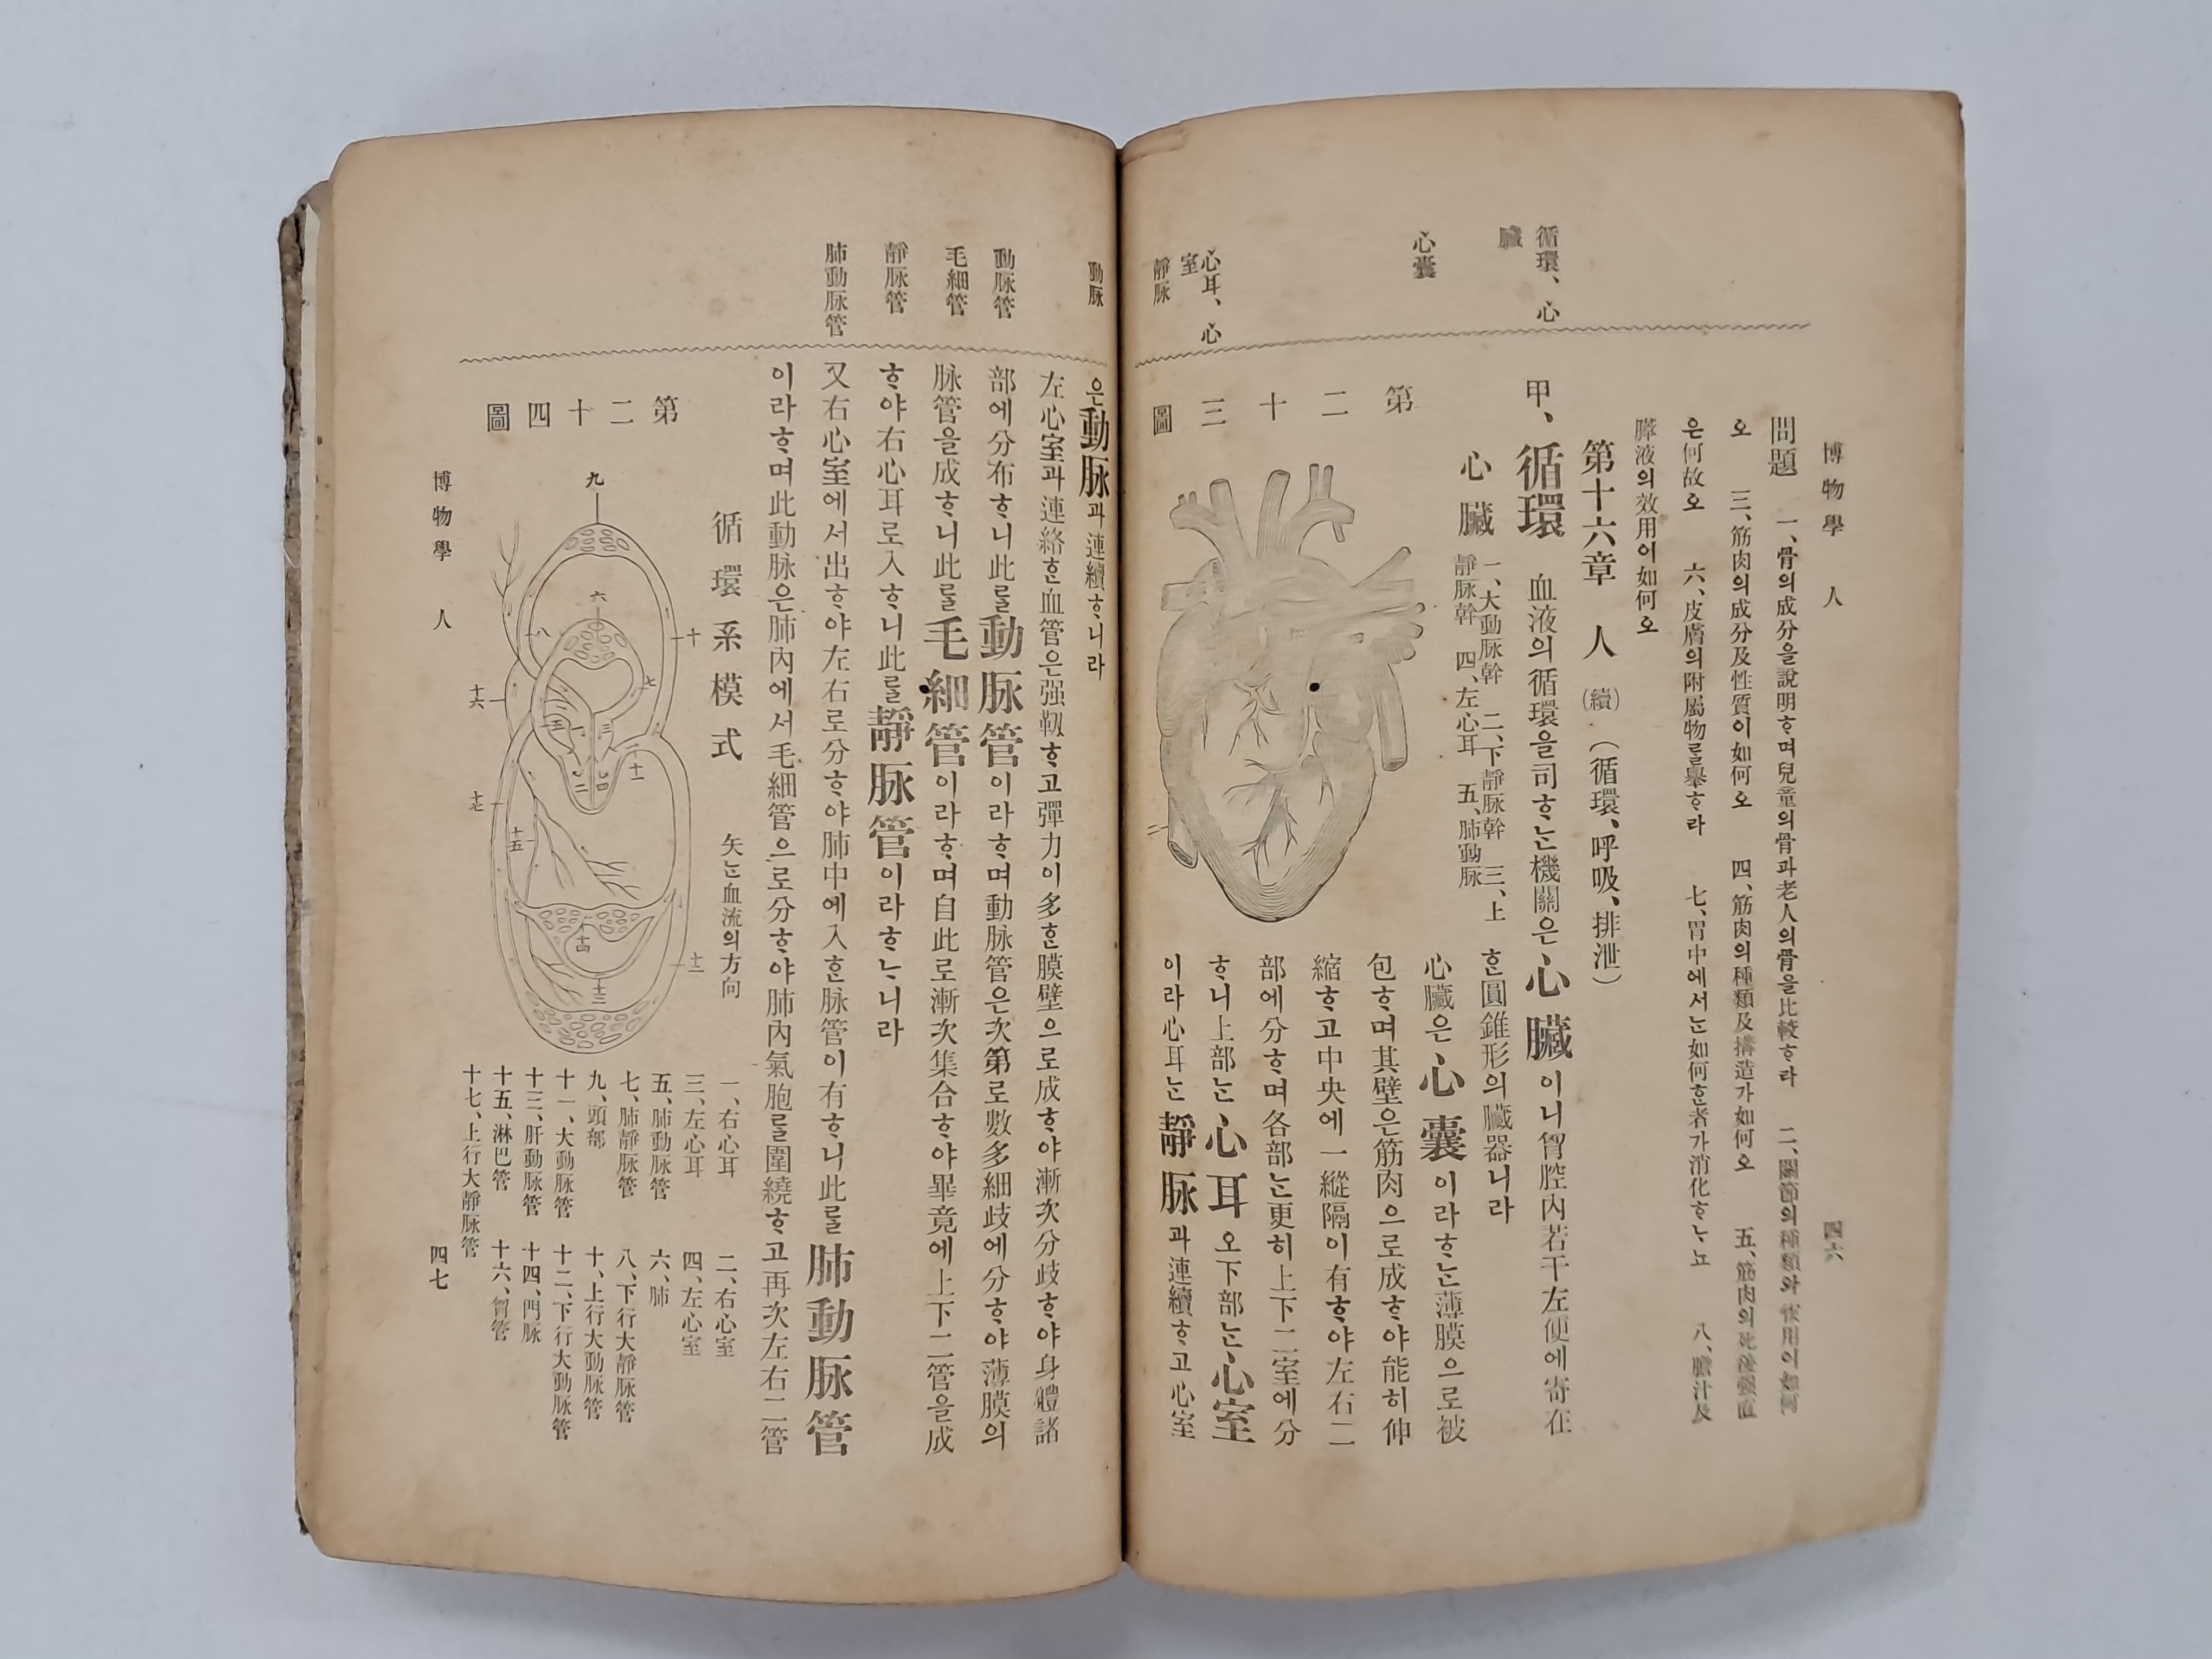 博物學 人 四六
問題 一、骨의成分을說明ᄒᆞ며兒童의骨과老人의骨을比較ᄒᆞ라 二、關節의種類와作用이如何
오 三、筋肉의成分及性質이如何오 四、筋肉의種類及搆造가如何오 五、筋肉의死後强直
은何故오 六、皮膚의附屬物을擧ᄒᆞ라 七、胃中에서ᄂᆞᆫ如何ᄒᆞᆫ者가消化ᄒᆞᄂᆞ뇨 八、膽汁及
膵液의效用이如何오
第十六章 人(續)(循環、呼吸、排泄)
循環、心
臟
甲、循環 血液의循環을司ᄒᆞᄂᆞᆫ機關은心臟이니胷腔內若干左便에寄在
ᄒᆞᆫ圓錐形의臟器니라
心囊
心臟은心囊이라ᄒᆞᄂᆞᆫ薄膜으로被
包ᄒᆞ며其壁은筋肉으로成ᄒᆞ야能히伸
縮ᄒᆞ고中央에一縱隔이有ᄒᆞ야左右二
部에分ᄒᆞ며各部ᄂᆞᆫ更히上下二室에分
心耳、心
室
ᄒᆞ니上部ᄂᆞᆫ心耳오下部ᄂᆞᆫ心室
靜脉
이라心耳ᄂᆞᆫ靜脉과連續ᄒᆞ고心室
第二十三圖
心臟
一、大動脉幹 二、下靜脉幹 三、上
靜脉幹 四、左心耳 五、肺動脉
二
動脉
은動脉과連續ᄒᆞ니라
左心室과連絡ᄒᆞᆫ血管은强靱ᄒᆞ고彈力이多ᄒᆞᆫ膜壁으로成ᄒᆞ야漸次分歧ᄒᆞ야身體諸
動脉管
部에分布ᄒᆞ니此ᄅᆞᆯ動脉管이라ᄒᆞ며動脉管은次第로數多細歧에分ᄒᆞ야薄膜의
毛細管
脉管을成ᄒᆞ니此ᄅᆞᆯ毛細管이라ᄒᆞ며自此로漸次集合ᄒᆞ야畢竟에上下二管을成
靜脉管
ᄒᆞ야右心耳로入ᄒᆞ니此ᄅᆞᆯ靜脉管이라ᄒᆞᄂᆞ니라
肺動脉管
又右心室에서出ᄒᆞ야左右로分ᄒᆞ야肺中에入ᄒᆞᆫ脉管이有ᄒᆞ니此ᄅᆞᆯ肺動脉管
이라ᄒᆞ며此動脉은肺內에서毛細管으로分ᄒᆞ야肺內氣胞ᄅᆞᆯ圍繞ᄒᆞ고再次左右二管
第二十四圖
循環系模式 矢ᄂᆞᆫ血流의方向
九
六
八
十
七
十六
十一
十七
十五
十四
十三
十二
一、右心耳 二、右心室
三、左心耳 四、左心室
五、肺動脉管 六、肺
七、肺靜脉管 八、下行大靜脉管
九、頭部 十、上行大動脉管
十一、大動脉管 十二、下行大動脉管
十三、肝動脉管 十四、門脉
十五、淋巴管 十六、胷管
十七、上行大靜脉管
博物學 人 四七